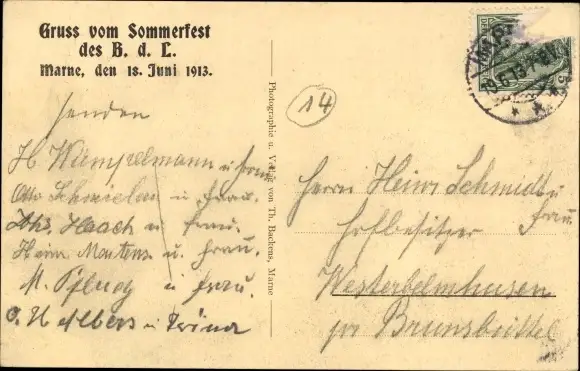 Gruss vom Sommerfest
des B. d. L.
Marne, den 18. Juni 1913.
14
senden
H Wümpelmann u Frau
Otto Schmielau u Frau.
Johs. Haach u Frau.
Heinr Martens u. Frau.
M. Pflueg u Frau.
Albers u
Photographie u. Verlag von Th. Backens, Marne
Herrn Heinr Schmidt u
Frau
Hofbesitzer
Westerbelmhusen
per Brunsbüttel